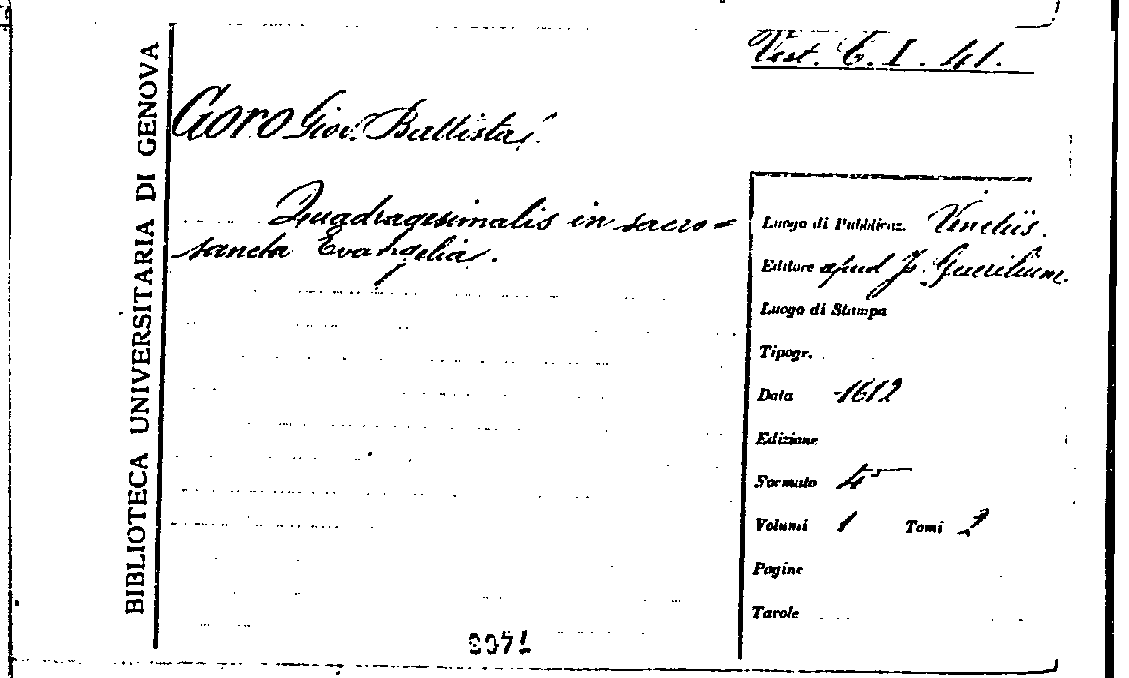 BIBLIOTECA UNIVERSITARIA DI GENOVA
Vest. C. I. 41.
Goro Giov. Battista.
Quadragesimalis in sacro=
sancta Evangelia.
Luogo di Pubblicaz. Venetiis.
Editore apud J. Guerilium.
Luogo di Stampa
Tipogr.
Data 1612
Edizione
Formato 4°
Volumi 1 Tomi 2
Pagine
Tavole